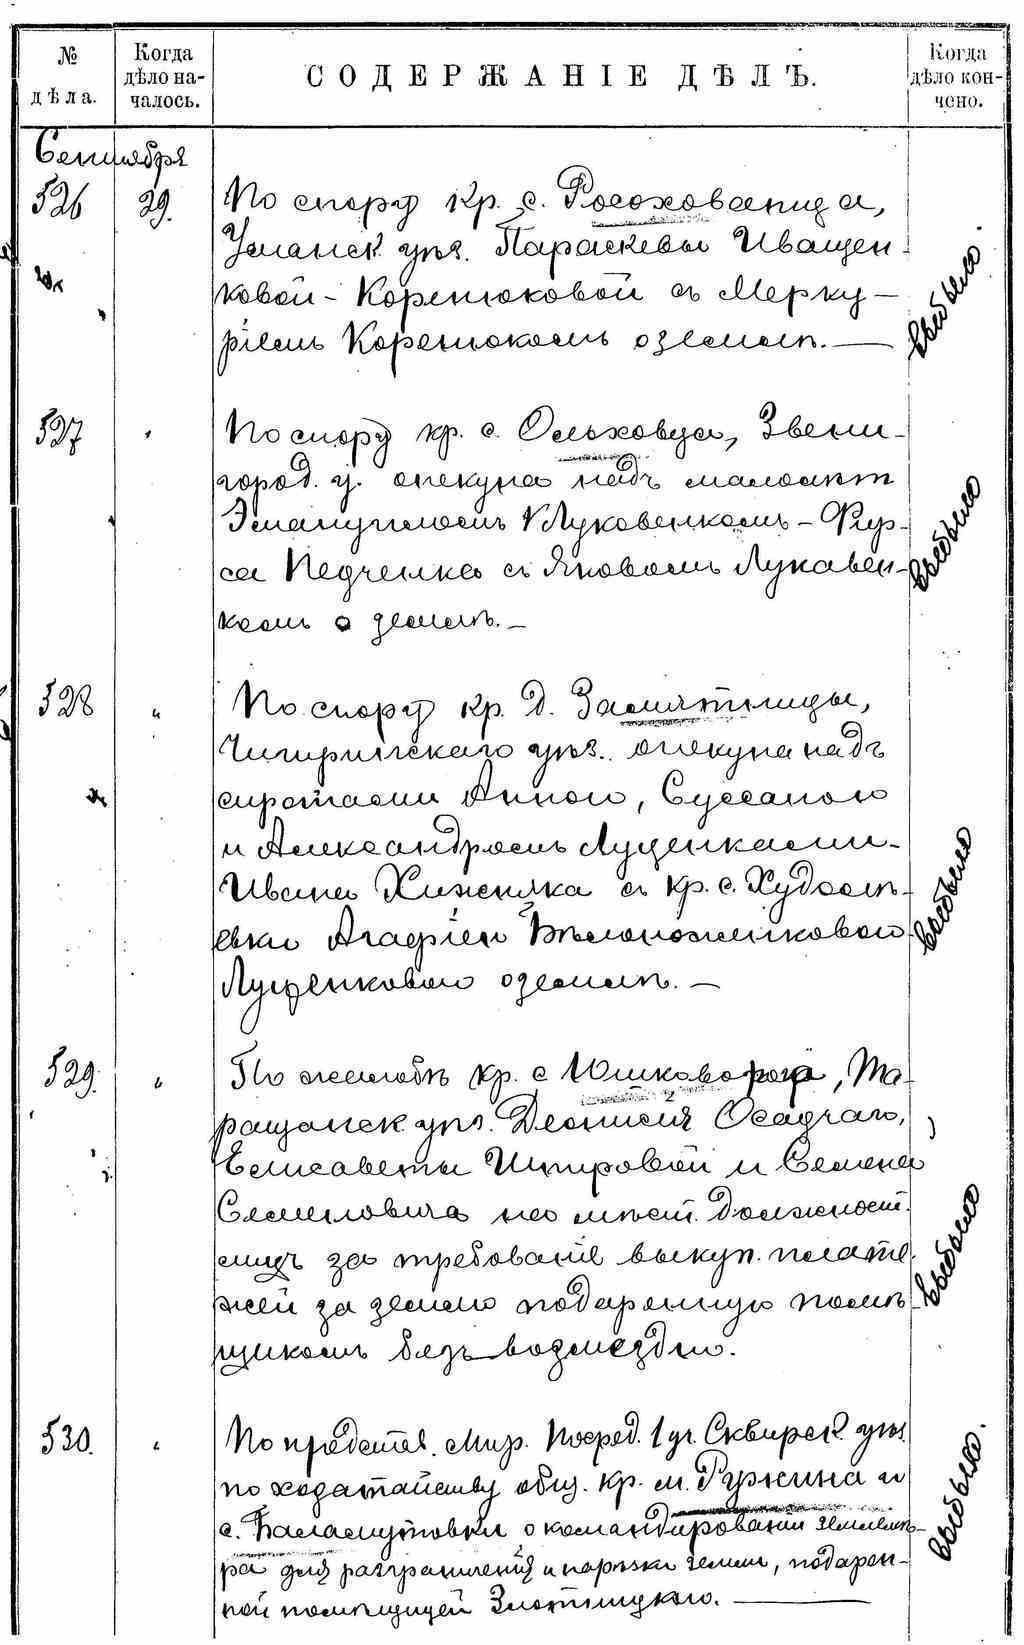 № дѣла.
Когда дѣло на-чалось.
СОДЕРЖАНІЕ ДѢЛЪ.
Когда дѣло кон-чено.
Сентября
526 29. По спору кр. с. Росоховатца,
Уманск. уѣз. Параскевы Иващен-
ковой-Коренюковой съ Мерку-
ріемъ Коренюкомъ о землѣ. — выбыло
527 " По спору кр. с. Ольховца, Звени-
город. у. опекуна надъ малолѣт
Эмануиломъ Луковенкомъ - Фир-
са Педченка съ Яковомъ Лукавен-
комъ о землѣ. — выбыло
528 " По спору кр. д. Замятницы,
Чигиринскаго уѣз. опекуна надъ
сиротами Анною, Суссаною
и Александромъ Луценками-
Ивана Хижняка съ кр. с. Худолѣ-
евки Агафіей Бѣлоноженковой
Луценковою о землѣ. — выбыло
529. " По жалобѣ кр. с. Юшкова рога, Та-
ращанск. уѣз. Деонисія Осадчаго,
Елисаветы и Семена
на мѣст. должност.
лицъ за требованіе выкуп. плате-
жей за землю подаренную помѣ-
щикомъ безъ возмездно. выбыло
530. " По представ. Мир. Посред. 1 уч. Сквирск. уѣз.
по ходатайству общ. кр. м. Ружина и
с. Баламутовки о командированіи землемѣ-
ра для разграниченія и нарѣзки земли, подарен-
ной помѣщицей Злотницкою. — выбыло.